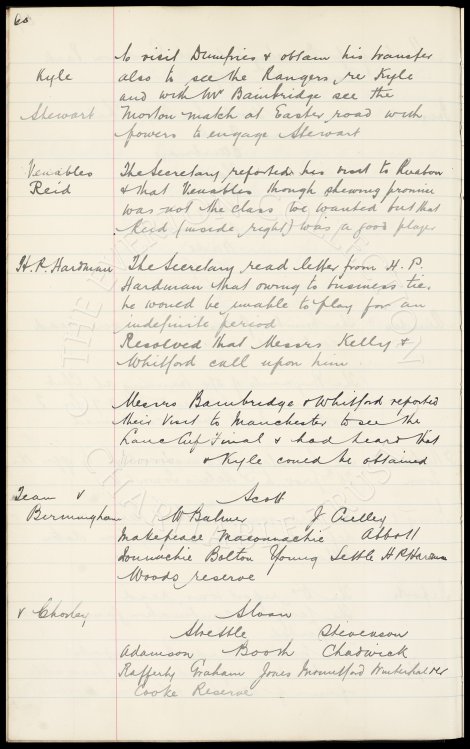 60
to visit Dumfries & obtain his transfer
Kyle also to see the Rangers re Kyle
and with Mr Bainbridge see the
Stewart Morton match at Easter road with
powers to engage Stewart
Venables The Secretary reported his visit to Ruabon
Reid & that Venables though shewing promise
was not the class we wanted but that
Reid (inside right) was a good player
H. P. Hardman The Secretary read letter from H. P.
Hardman that owing to business ties
he would be unable to play for an
indefinite period
Resolved that Messrs Kelly &
Whitford call upon him.
Messrs Bainbridge & Whitford reported
their visit to Manchester to see the
Lanc Cup Final & had heard that
& Kyle could be obtained
Team v Scott
Birmingham W Balmer J Crelley
Makepeace Maconnachie Abbott
Donnachie Bolton Young Settle H P Hardman
Woods reserve
v Chorley Sloan
Strettle Stevenson
Adamson Booth Chadwick
Rafferty Graham Jones Mountford Winterhalder
Cooke Reserve
THE EVERTON COLLECTION
CHARITABLE TRUST